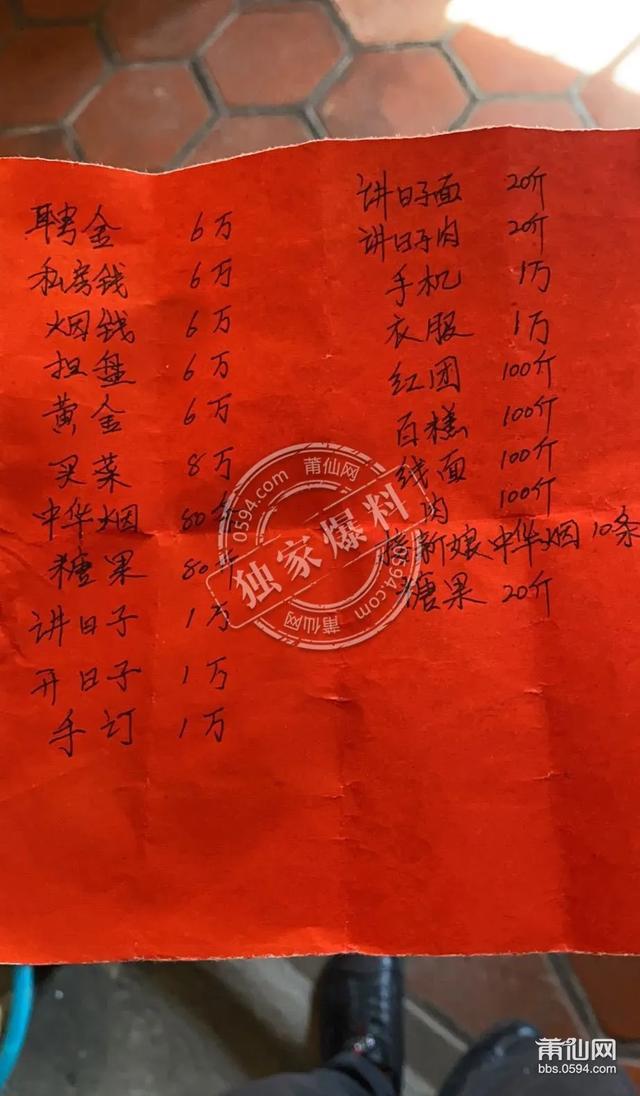 聘金 6万
私房钱 6万
烟钱 6万
担盘 6万
黄金 6万
买菜 8万
中华烟 80条
糖果 80斤
讲日子 1万
开日子 1万
手订 1万
讲日子面 20斤
讲日子肉 20斤
手机 1万
衣服 1万
红团 100斤
百糕 100斤
线面 100斤
肉 100斤
新娘中华烟 10条
糖果 20斤
莆仙网
0594.com
独家爆料
0594.com
莆仙网
莆仙网
bbs.0594.com